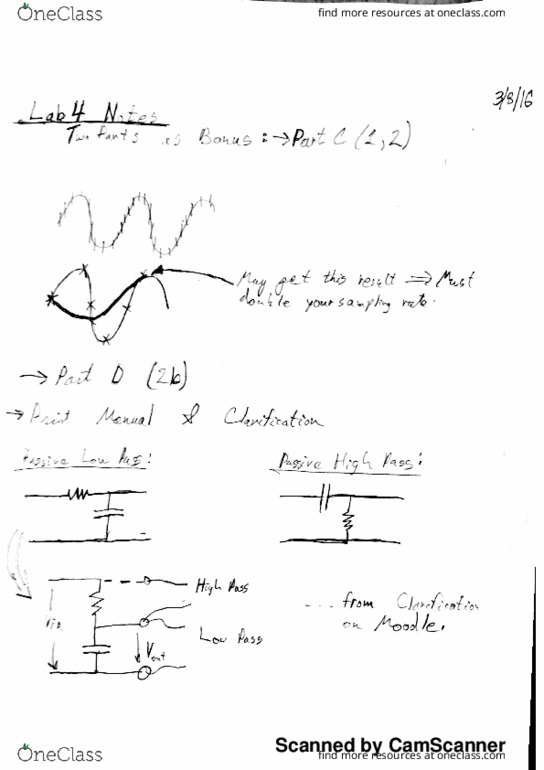 OneClass
find more resources at oneclass.com
3/8/16
Lab 4 Notes
Two Parts as Bonus: → Part C (1,2)
May get this result ⇒ Must
double your sampling rate.
→ Part D (2b)
→ Print Manual & Clarification
Passive Low Pass:
Passive High Pass:
High Pass
Vin
Low Pass
Vout
... from Clarification
on Moodle.
Scanned by CamScanner
OneClass
find more resources at oneclass.com